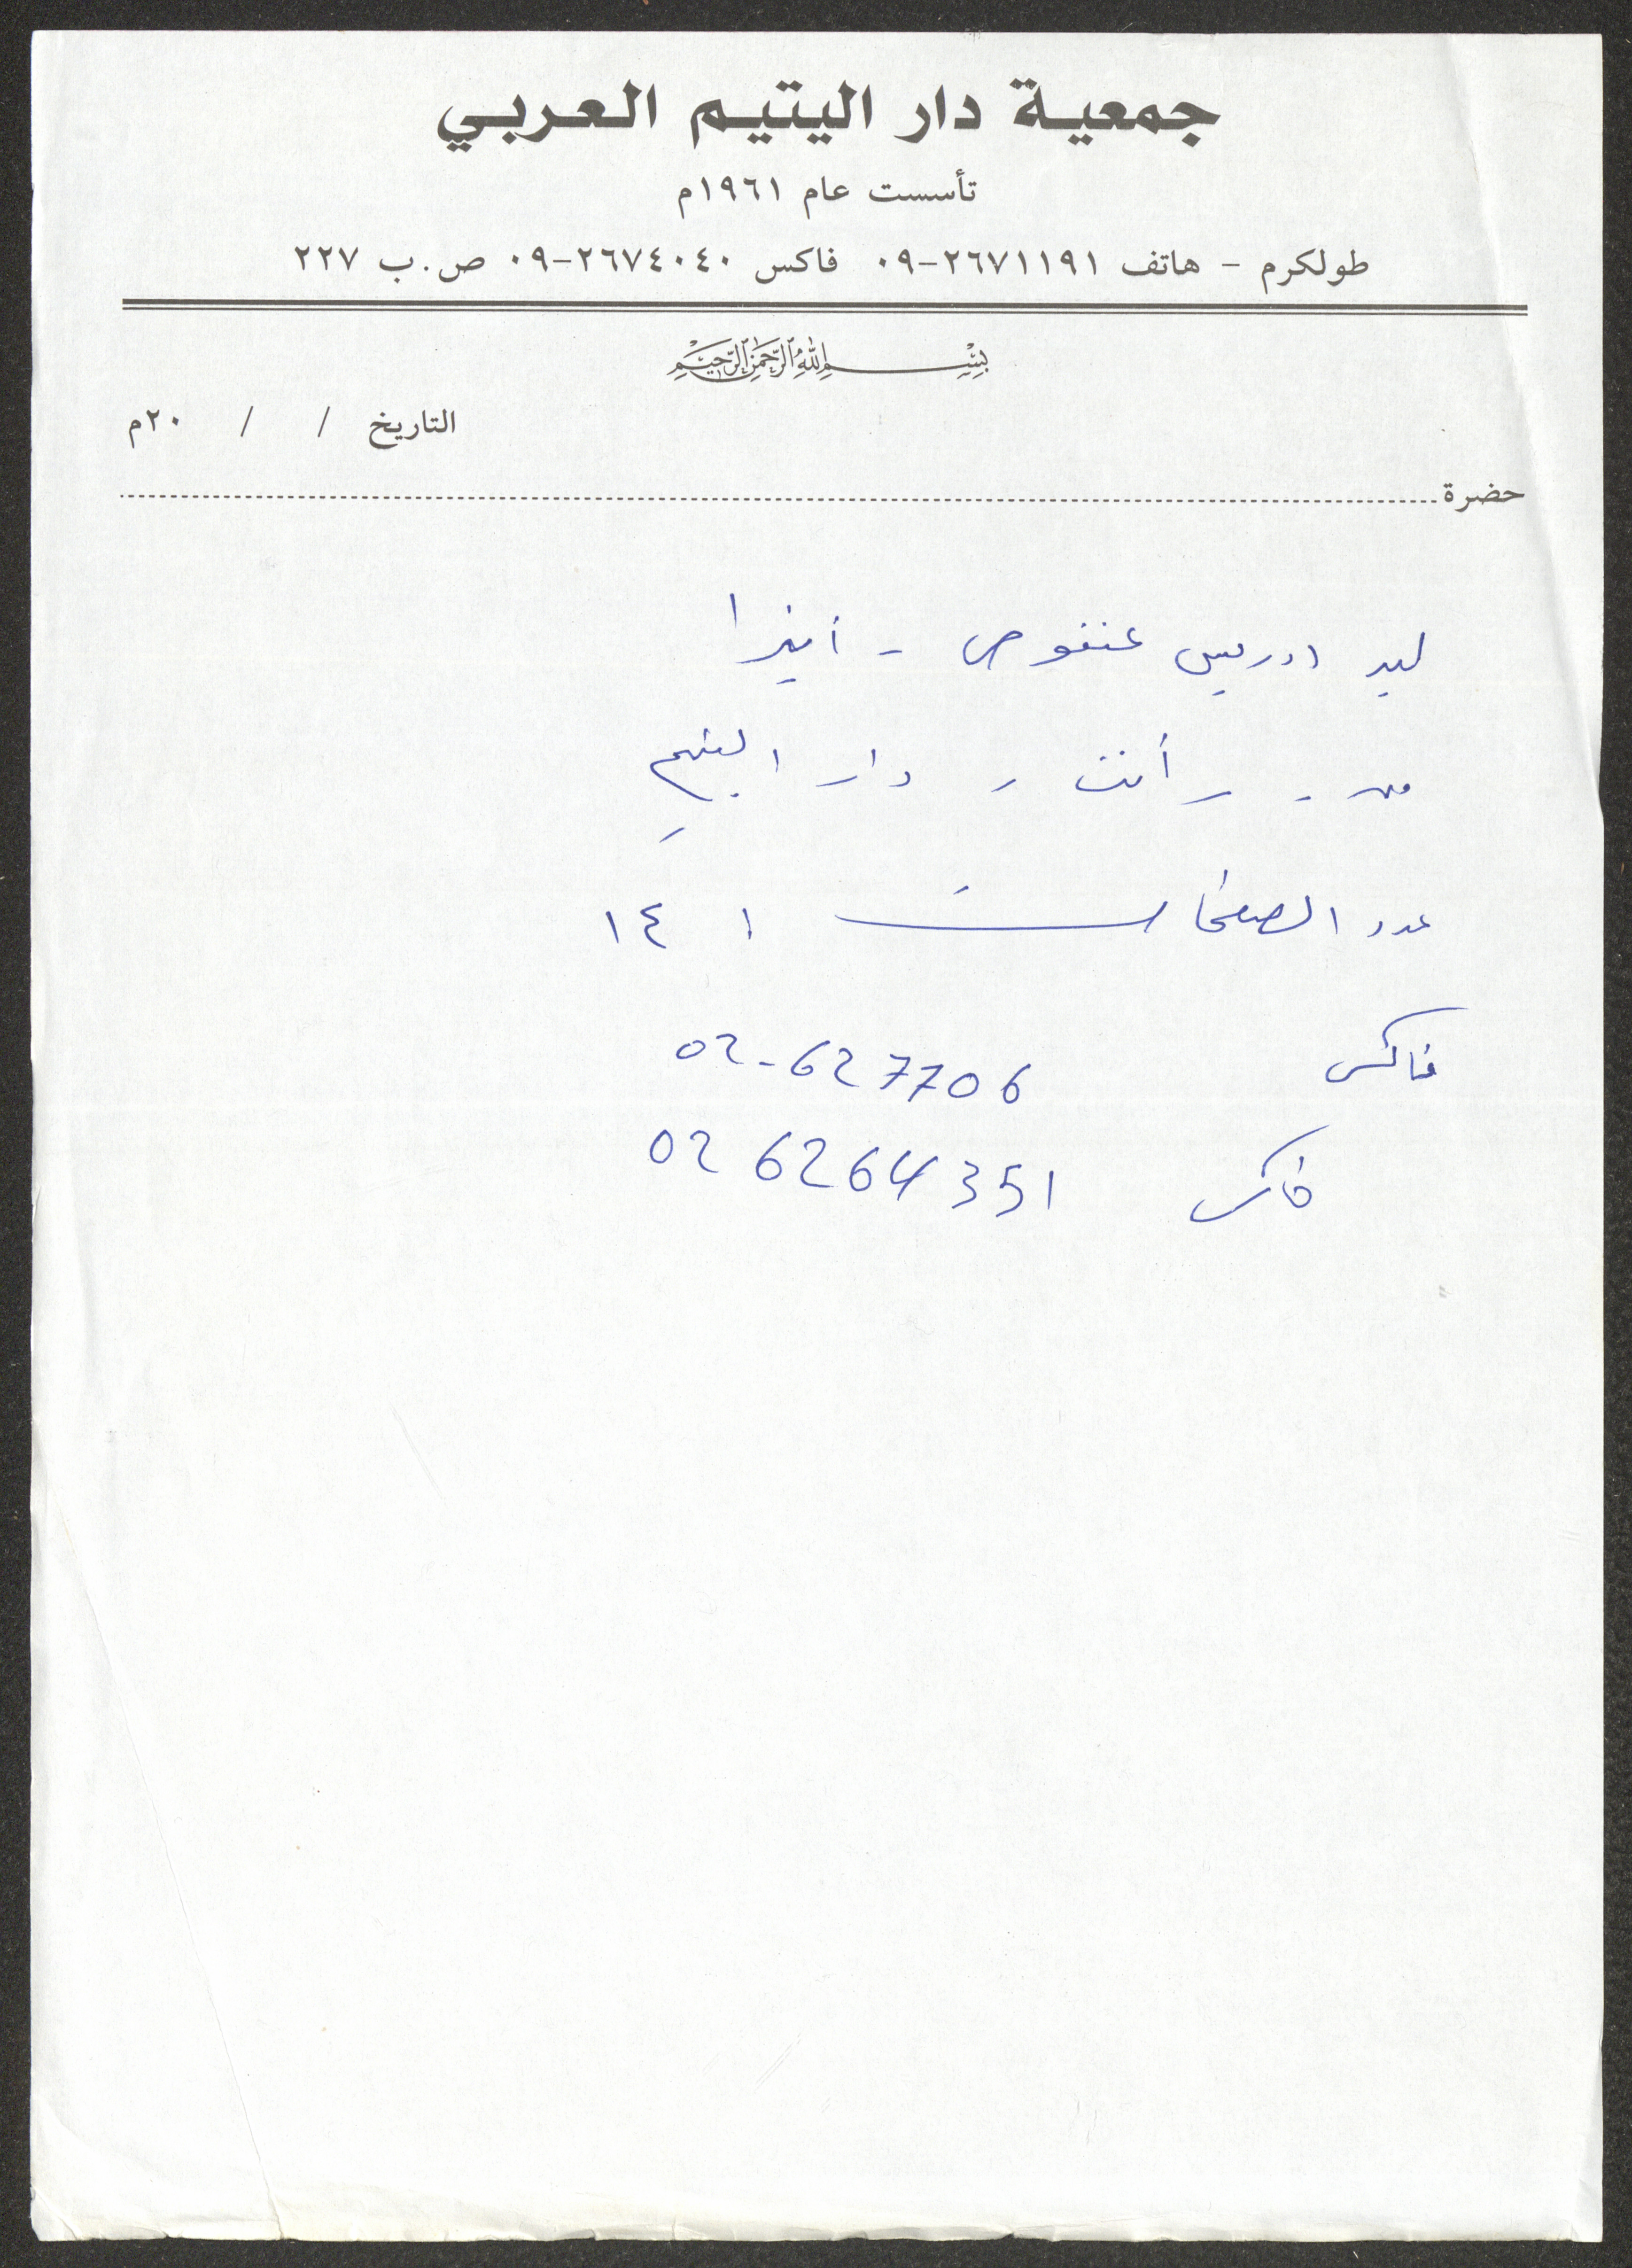 جمعية دار اليتيم العربي
تأسست عام ١٩٦١م
طولكرم - هاتف ٢٦٧١١٩١-٠٩ فاكس ٢٦٧٤٠٤٠-٠٩ ص.ب ٢٢٧
بسم الله الرحمن الرحيم
التاريخ / / ٢٠م
حضرة
ادريس - أنيرا
من - رأفت - دار اليتيم
عدد الصفحات ١٤
فاكس 02-627706
فاكس 02 6264351